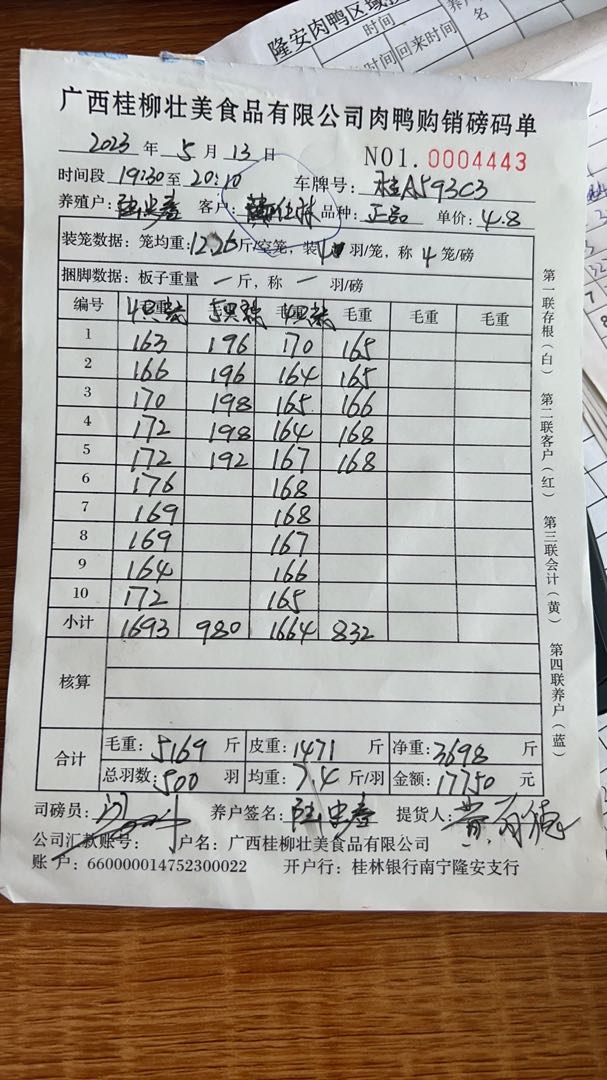 隆安肉鸭区域
时间
名
时间 回来时间
广西桂柳壮美食品有限公司肉鸭购销磅码单
2023 年 5 月 13 日 NO1.0004443
时间段 19:30至 20:10 车牌号: 桂A593C3
养殖户: 客户: 品种: 正品 单价: 4.8
装笼数据: 笼均重: 12.26斤/空笼, 装4羽/笼, 称 4 笼/磅
捆脚数据: 板子重量 一 斤, 称 一 羽/磅
编号 4只装 5只装 4只装 毛重 毛重 毛重
1 163 196 170 165
2 166 196 164 165
3 170 198 165 166
4 172 198 164 168
5 172 192 167 168
6 176 168
7 169 168
8 169 167
9 164 166
10 172 165
小计 1693 980 1664 832
核算
合计 毛重: 5169 斤 皮重: 1471 斤 净重: 3698 斤
总羽数: 500 羽 均重: 7.4 斤/羽 金额: 17750 元
司磅员: 养户签名: 提货人: 黄有德
公司汇款账号: 户名: 广西桂柳壮美食品有限公司
账 户: 660000014752300022 开户行: 桂林银行南宁隆安支行
第一联存根(白) 第二联客户(红) 第三联会计(黄) 第四联养户(蓝)